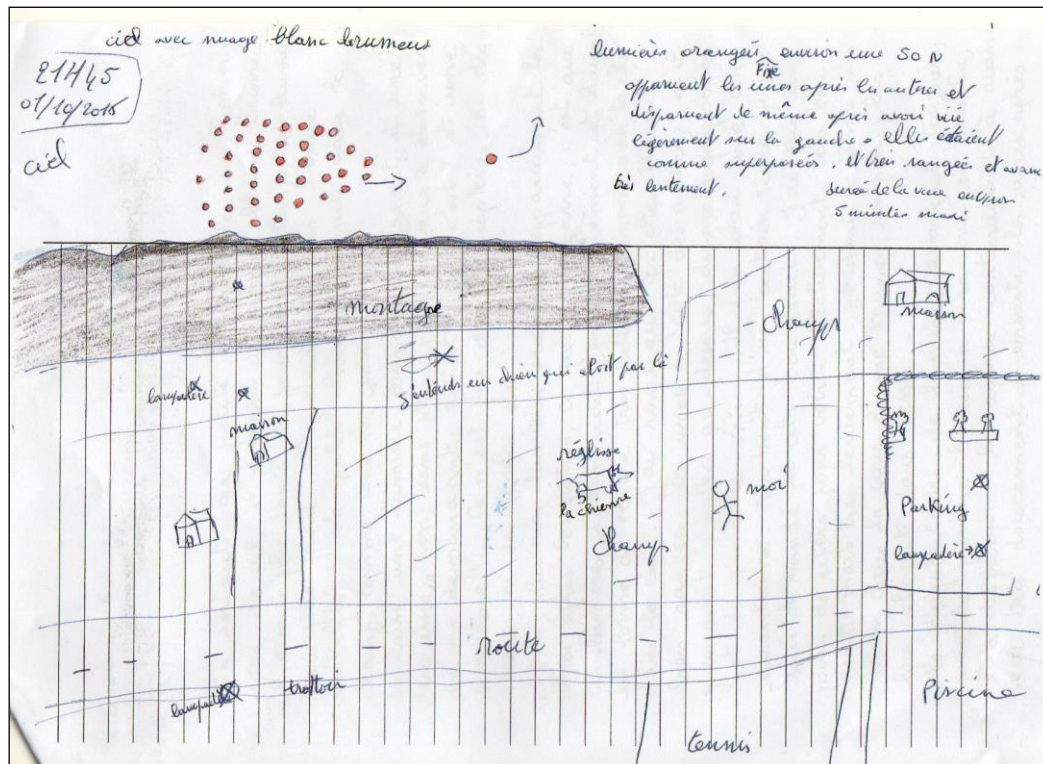 ciel avec nuage blanc brumeux
21H45
01/10/2015
ciel
lumières orangées environ une 50 N
Fixe
apparaient les unes après les autres et
disparaient de même après avoir viré
légèrement sur la gauche. elles étaient
comme superposées. et bien rangées et avance
très lentement.
durée de la vue environ
5 minutes maxi
montagne
champs
maison
j'entends un chien qui aboit par là
lampadère
maison
réglisse
la chienne
moi
champs
Parking
lampadère
route
trottoir
lampadère
Piscine
tennis